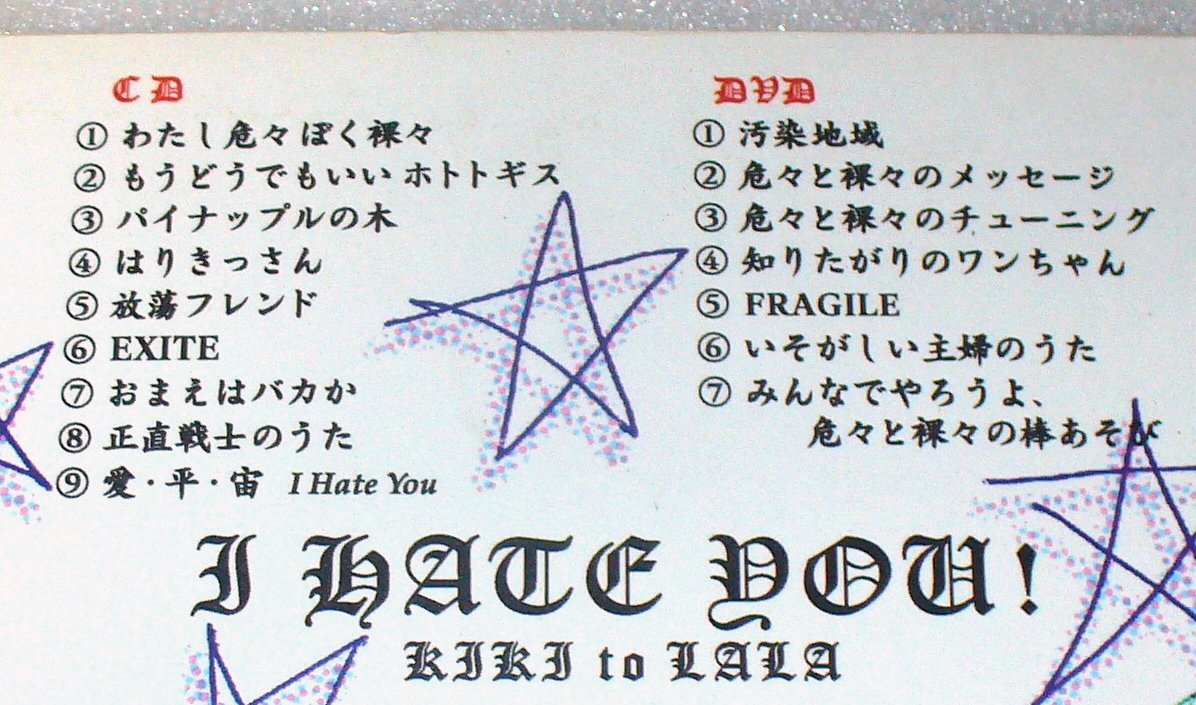 CD
① わたし危々ぼく裸々
② もうどうでもいい ホトトギス
③ パイナップルの木
④ はりきっさん
⑤ 放蕩フレンド
⑥ EXITE
⑦ おまえはバカか
⑧ 正直戦士のうた
⑨ 愛・平・宙 I Hate You
DVD
① 汚染地域
② 危々と裸々のメッセージ
③ 危々と裸々のチューニング
④ 知りたがりのワンちゃん
⑤ FRAGILE
⑥ いそがしい主婦のうた
⑦ みんなでやろうよ、
危々と裸々の棒あそび
I HATE YOU!
KIKI to LALA